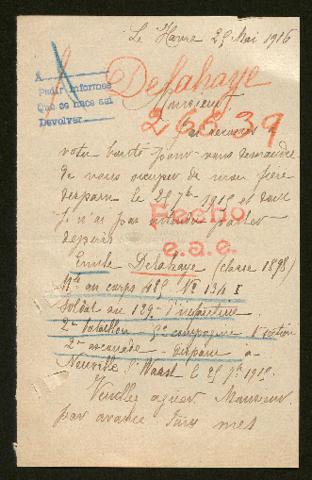 Le Havre 29 Mai 1916
A
Pedir informes
Que se hace así
Devolver
Delahaye
Monsieur
26839
J'ai recours à
votre bonté pour vous demander
de vous occuper de mon frère
disparu le 25 7bre 1915 et dont
je n'ai pas entendu parler
depuis
Hecho
e.a.e.
Emile Delahaye (classe 1898)
Mle au corps
No 134
Soldat au 129e d'infanterie
2me bataillon compagnie 1re section
2me escouade - disparu à
Neuville St Waast le 25 7bre 1915.
Veuillez agréer Monsieur
par avance tous mes